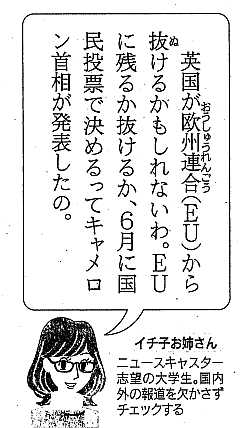 英国が欧州連合(EU)から
抜けるかもしれないわ。EU
に残るか抜けるか、6月に国
民投票で決めるってキャメロ
ン首相が発表したの。
イチ子お姉さん
ニュースキャスター
志望の大学生。国内
外の報道を欠かさず
チェックする